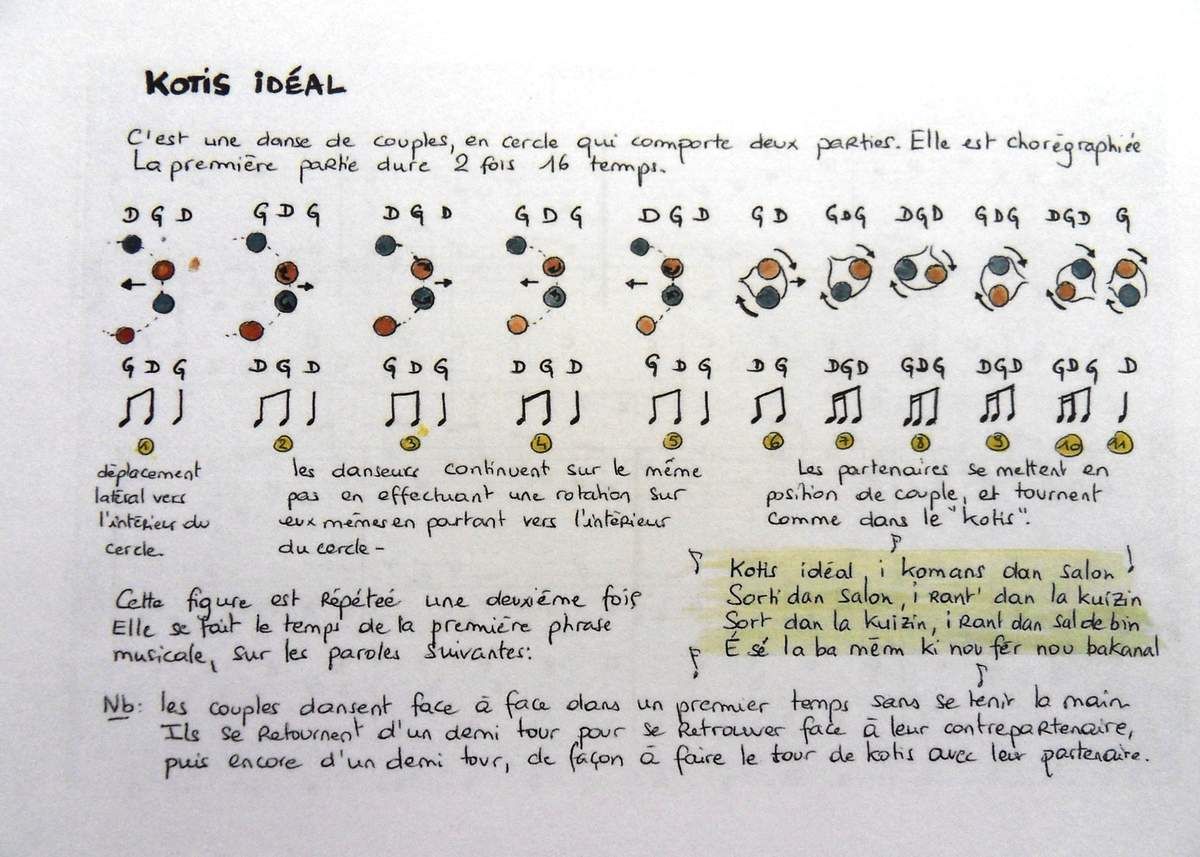 KOTIS IDÉAL
C'est une danse de couples, en cercle qui comporte deux parties. Elle est chorégraphiée
La première partie dure 2 fois 16 temps.
D G D G D G D G D G D G D G D G D GDG DGD GDG DGD G
G D G D G D G D G D G D G D G D G DGD GDG DGD GDG D
1 2 3 4 5 6 7 8 9 10 11
déplacement
latéral vers
l'intérieur du
cercle.
les danseurs continuent sur le même
pas en effectuant une rotation sur
eux mêmes en partant vers l'intérieur
du cercle -
Les partenaires se mettent en
position de couple, et tournent
comme dans le "kotis".
Cette figure est Répéteé une deuxième fois
Elle se fait le temps de la première phrase
musicale, sur les paroles suivantes:
Kotis idéal, i komans dan salon !
Sorti dan salon, i Rant' dan la kuizin
Sort dan la kuizin, i Rant dan sal de bin
É sé la ba mêm ki nou fér nou bakanal
Nb: les couples dansent face à face dans un premier temps sans se tenir la main
Ils se Retournent d'un demi tour pour se Retrouver face à leur contrepartenaire,
puis encore d'un demi tour, de façon à faire le tour de kotis avec leur partenaire.